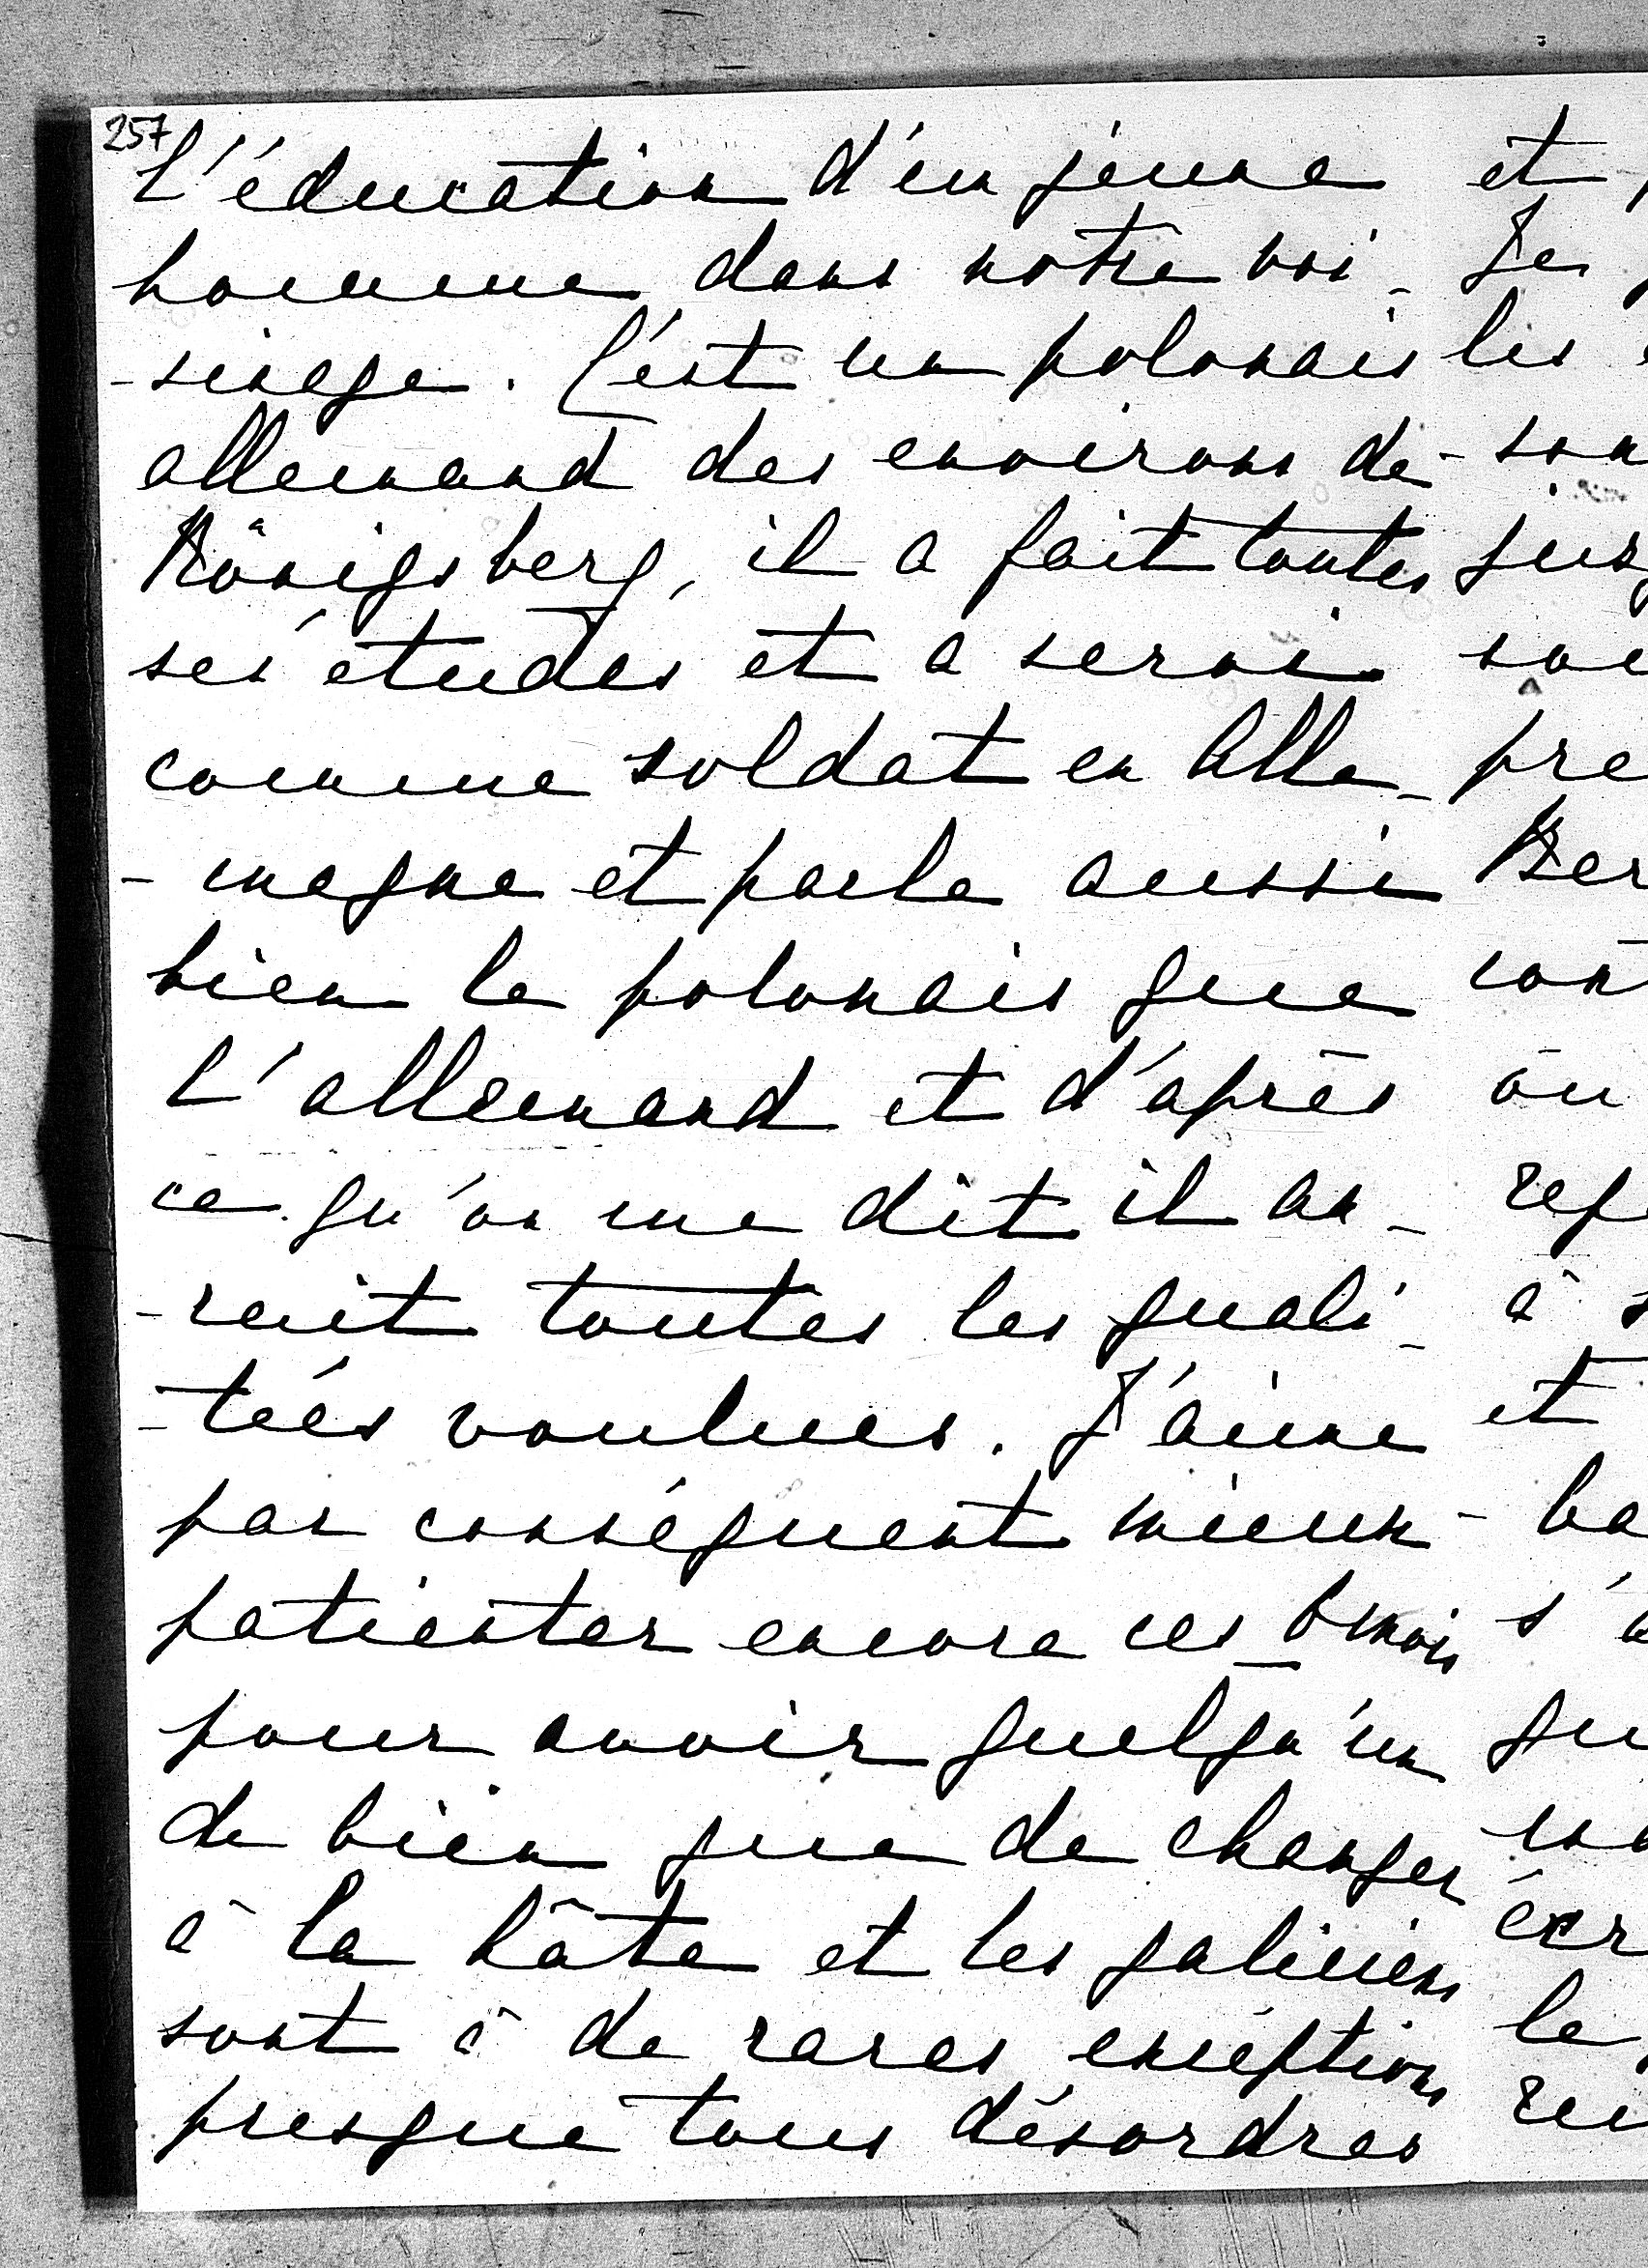 257
L'éducation d'un jeune
homme dans notre voi-
-sinage. C'est un polonais
allemand des environs de
Königsberg, il a fait toutes
ses études et a servi
comme soldat en Alle-
-magne et parle aussi
bien le polonais que
l'allemand et d'après
ce qu'on me dit il au-
-rait toutes les quali-
-tées voulues. J'aime
par conséquent mieux
patienter encore ces 6 mois
pour avoir quelqu'un
de bien que de changer
à la hâte et les galiciens
sont à de rares exceptions
presque tous désordres
et
Je
les
son
jus
sou
pre
Ber
con
ou
rep
à
et
ba
s'
qu
écr
le